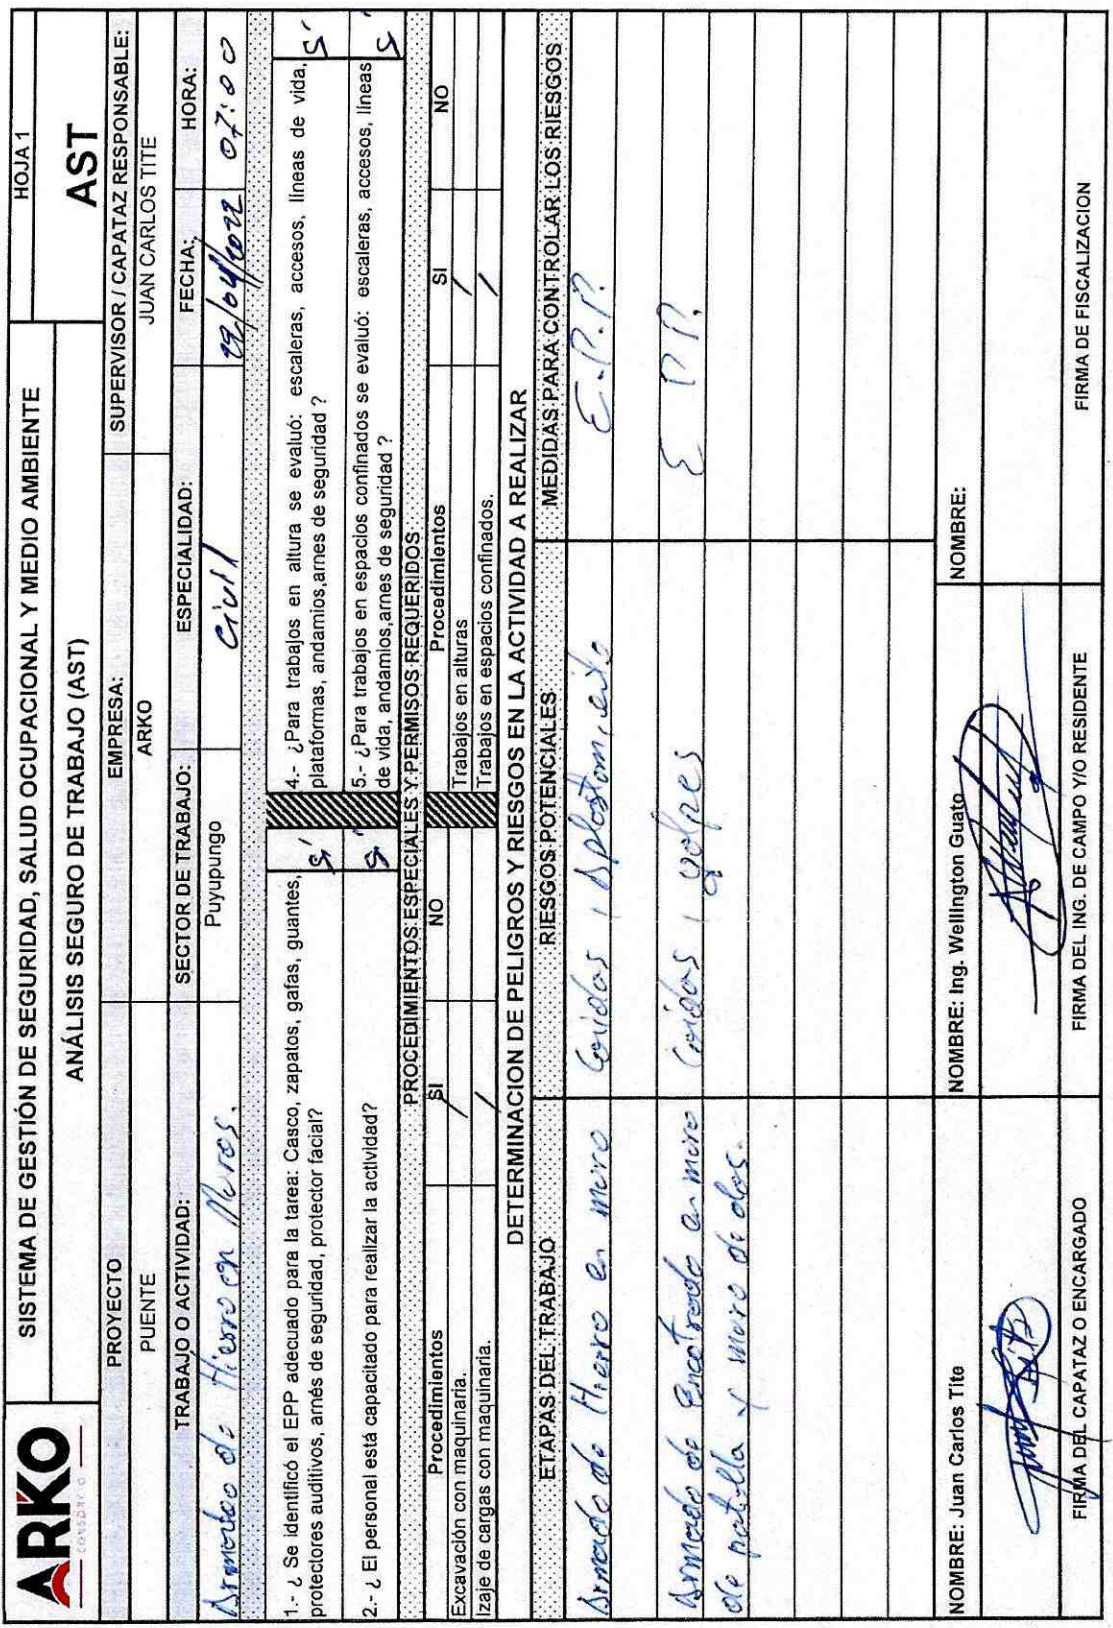 ARKO
CONSORCIO
SISTEMA DE GESTIÓN DE SEGURIDAD, SALUD OCUPACIONAL Y MEDIO AMBIENTE
HOJA 1
ANÁLISIS SEGURO DE TRABAJO (AST)
AST
PROYECTO
EMPRESA:
SUPERVISOR / CAPATAZ RESPONSABLE:
PUENTE
ARKO
JUAN CARLOS TITE
TRABAJO O ACTIVIDAD:
SECTOR DE TRABAJO:
ESPECIALIDAD:
FECHA:
HORA:
Armado de Hierro en Muros.
Puyupungo
Civil
/04/2022
07:00
1.- ¿ Se identificó el EPP adecuado para la tarea: Casco, zapatos, gafas, guantes,
protectores auditivos, arnés de seguridad, protector facial?
si
4.- ¿Para trabajos en altura se evaluó: escaleras, accesos, líneas de vida,
plataformas, andamios,arnes de seguridad ?
si
2.- ¿ El personal está capacitado para realizar la actividad?
si
5.- ¿Para trabajos en espacios confinados se evaluó: escaleras, accesos, líneas
de vida, andamios,arnes de seguridad ?
si
PROCEDIMIENTOS ESPECIALES Y PERMISOS REQUERIDOS
Procedimientos
SI
NO
Procedimientos
SI
NO
Excavación con maquinaria.
/
Trabajos en alturas
/
Izaje de cargas con maquinaria.
/
Trabajos en espacios confinados.
/
DETERMINACION DE PELIGROS Y RIESGOS EN LA ACTIVIDAD A REALIZAR
ETAPAS DEL TRABAJO
RIESGOS POTENCIALES
MEDIDAS PARA CONTROLAR LOS RIESGOS
Armado de Hierro en muro
Caidas, Aplastamiento
E.P.P.
Armado de Encofrado en muro
Caidas, golpes
E PP.
de pantalla y muro de alas.
NOMBRE: Juan Carlos Tite
NOMBRE: Ing. Wellington Guato
NOMBRE:
FIRMA DEL CAPATAZ O ENCARGADO
FIRMA DEL ING. DE CAMPO Y/O RESIDENTE
FIRMA DE FISCALIZACION